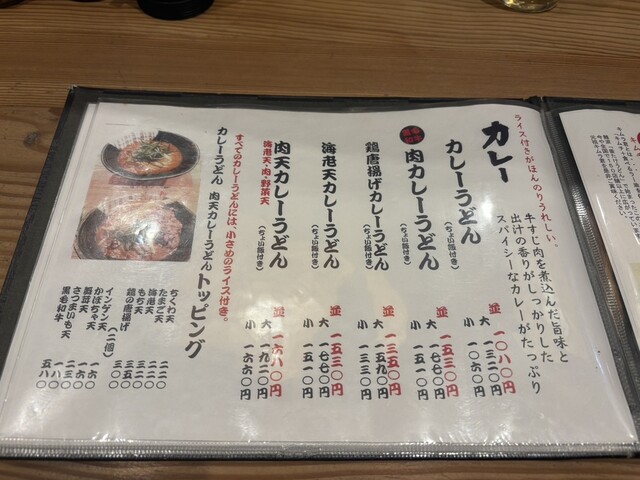 ライス付きがほんのりうれしい。
カレー
牛すじ肉を煮込んだ旨味と
出汁の香りがしっかりした
スパイシーなカレーがたっぷり
カレーうどん
(ちょい飯付き)
並 一〇八〇円
大 一三二〇円
小 一〇六〇円
肉カレーうどん
(ちょい飯付き)
並 一五三〇円
大 一七七〇円
小 一五一〇円
鶏唐揚げカレーうどん
(ちょい飯付き)
並 一三五〇円
大 一五九〇円
小 一三三〇円
海老天カレーうどん
(ちょい飯付き)
並 一五三〇円
大 一七七〇円
小 一五一〇円
肉天カレーうどん
(ちょい飯付き)
海老天・肉・野菜天
並 一六八〇円
大 一九二〇円
小 一六六〇円
すべてのカレーうどんには、小さめのライス付き。
カレーうどん 肉天カレーうどん
トッピング
ちくわ天 二二〇
たまご天 二二〇
海老天 三二〇
もち天 二二〇
鶏の唐揚げ 三五〇
(二個)
インゲン天 一六〇
かぼちゃ天 一六〇
舞茸天 二三〇
さつまいも天 一八〇
黒毛和牛 五八〇